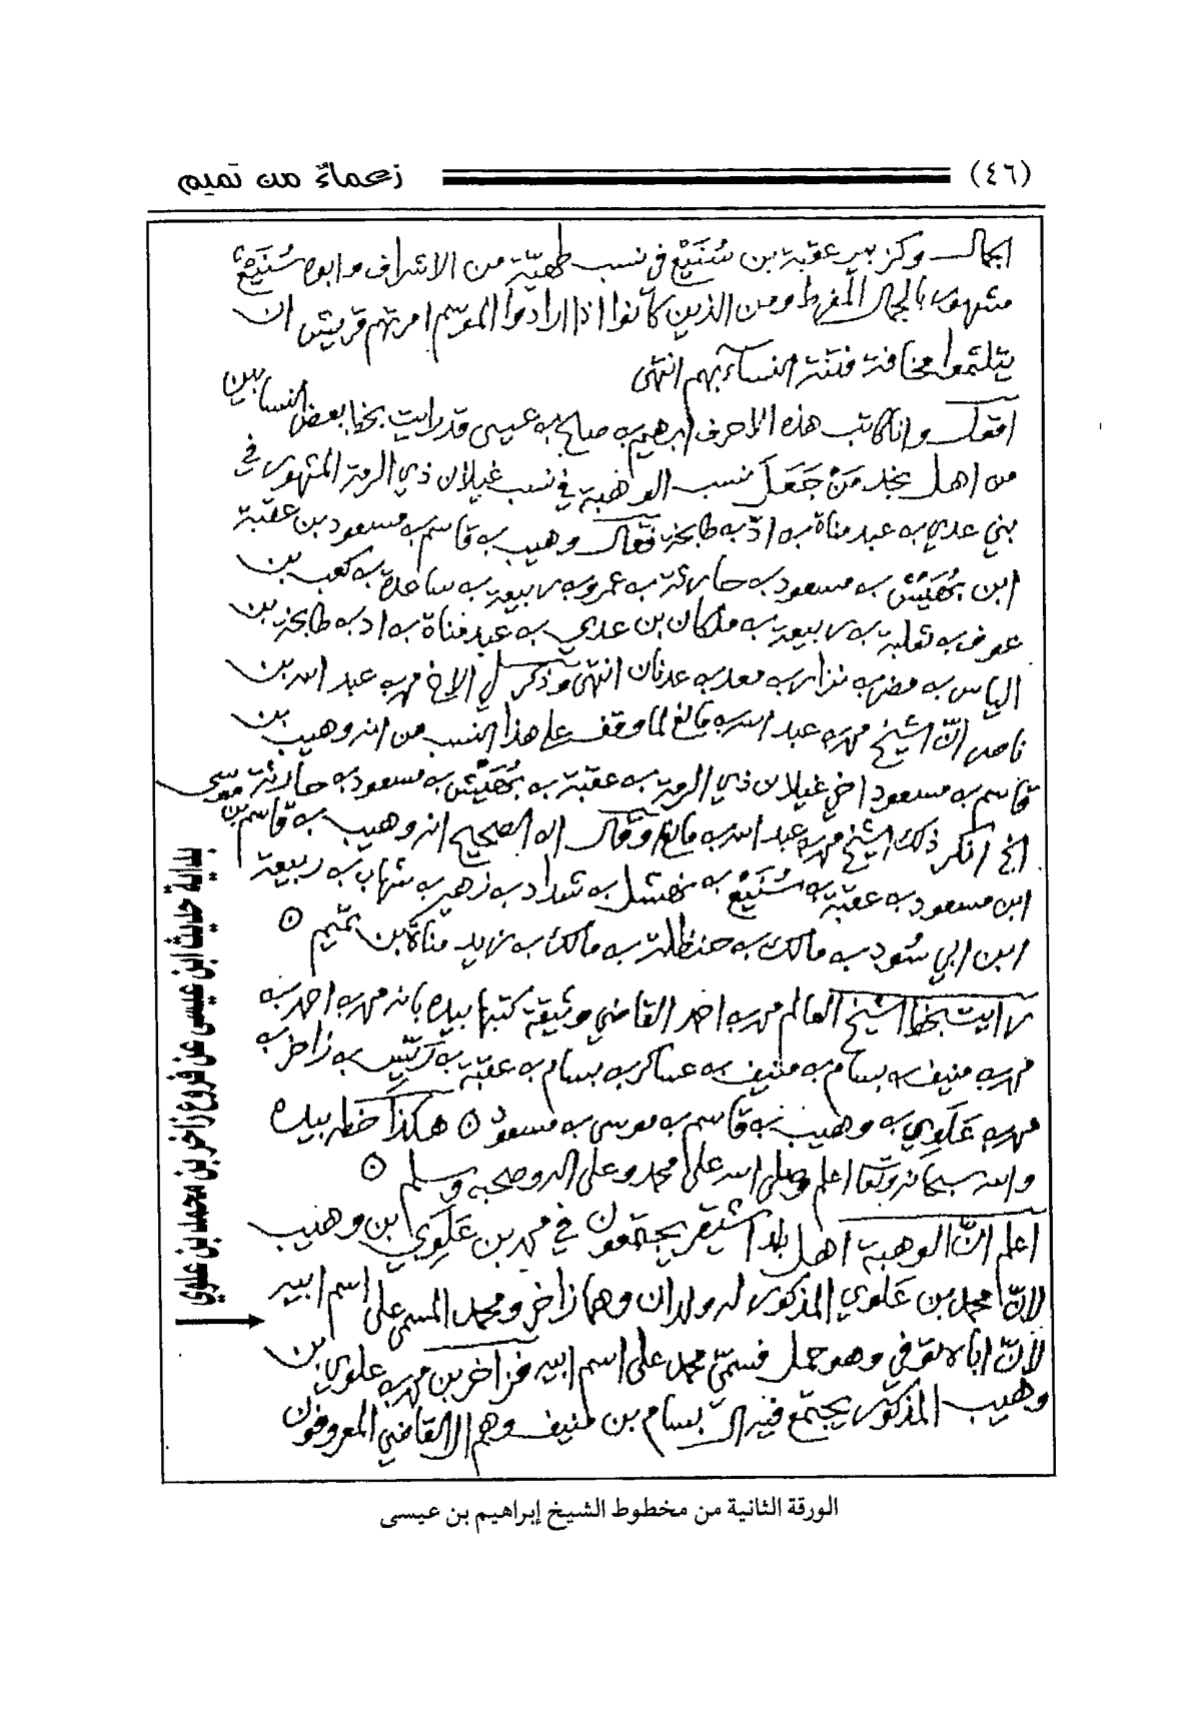 (٤٦) زعماءٌ من تميم
الجمال وكزبير عقبة بن سُنَيْع في نسب طهيّة من الاشراف وابوه سُنَيْع
مشهور بالجمال المفرط ومن الذين كانوا اذا ارادوا الموسم امرتهم قريش ان
يتلثموا مخافة فتنة النساء بهم انتهى
اقول وانا كاتب هذه الاحرف ابرهيم بن صالح بن عيسى قد رايت بخط بعض النسابين
من اهل نجد مَنْ جَعَلَ نسب الوهبة في نسب غيلان ذي الرمة المشهور في
بني عدي بن عبد مناة بن ادّ بن طابخة فقال وهيب بن قاسم بن مسعود بن عقبة
ابن بُهَيْش بن مسعود بن حارثة بن عمرو بن ربيعة بن ساعدة بن كعب بن
عوف بن ثعلبة بن ربيعة بن ملكان بن عدي بن عبد مناة بن اد بن طابخة بن
الياس بن مضر بن نزار بن معد بن عدنان انتهى وذكر لي الاخ محمد بن عبد الله بن
ناصر انّ الشيخ محمد بن عبد الله بن مانع لما وقف على هذا النسب من انه وهيب بن
قاسم بن مسعود اخي غيلان ذي الرمة بن عقبة بن بُهَيْش بن مسعود بن حارثة
الخ انكر ذلك الشيخ محمد بن عبد الله بن مانع وقال ان الصحيح انه وهيب بن قاسم بن موسى
ابن مسعود بن عقبة بن سُنَيْع بن نهشل بن شداد بن زهير بن شهاب بن ربيعة
ابن ابي سُود بن مالك بن حنظلة بن مالك بن زيد مناة بن تميم ه
رايت بخط الشيخ العالم محمد بن احمد القاضي وثيقة كتبها بيده بانه محمد بن احمد بن
محمد بن منيف بن بسام بن منيف بن عساكر بن بسام بن عقبة بن ريّس بن زاخر بن
محمد بن عَلَوي بن وهيب بن قاسم بن موسى بن مسعود ه هكذا خطه بيده
والله سبحانه وتعا اعلم وصلى الله على محمد وعلى اله وصحبه وسلم ه
اعلم انّ الوهبة اهل بلد اشيقر يجتمعون في محمد بن عَلَوي ابن وهيب
لانّ محمد بن عَلَوي المذكور له ولدان وهما زاخر ومحمد المسمى على اسم ابيه
لأنّ اباه توفي وهو حمل فسمّي محمد على اسم ابيه فزاخر بن محمد بن علوي بن
وهيب المذكور يجتمع فيه ال بسام بن منيف وهم ال القاضي المعروفون
بداية حديث ابن عيسى عن فروع زاخر بن محمد بن علوي
الورقة الثانية من مخطوط الشيخ إبراهيم بن عيسى